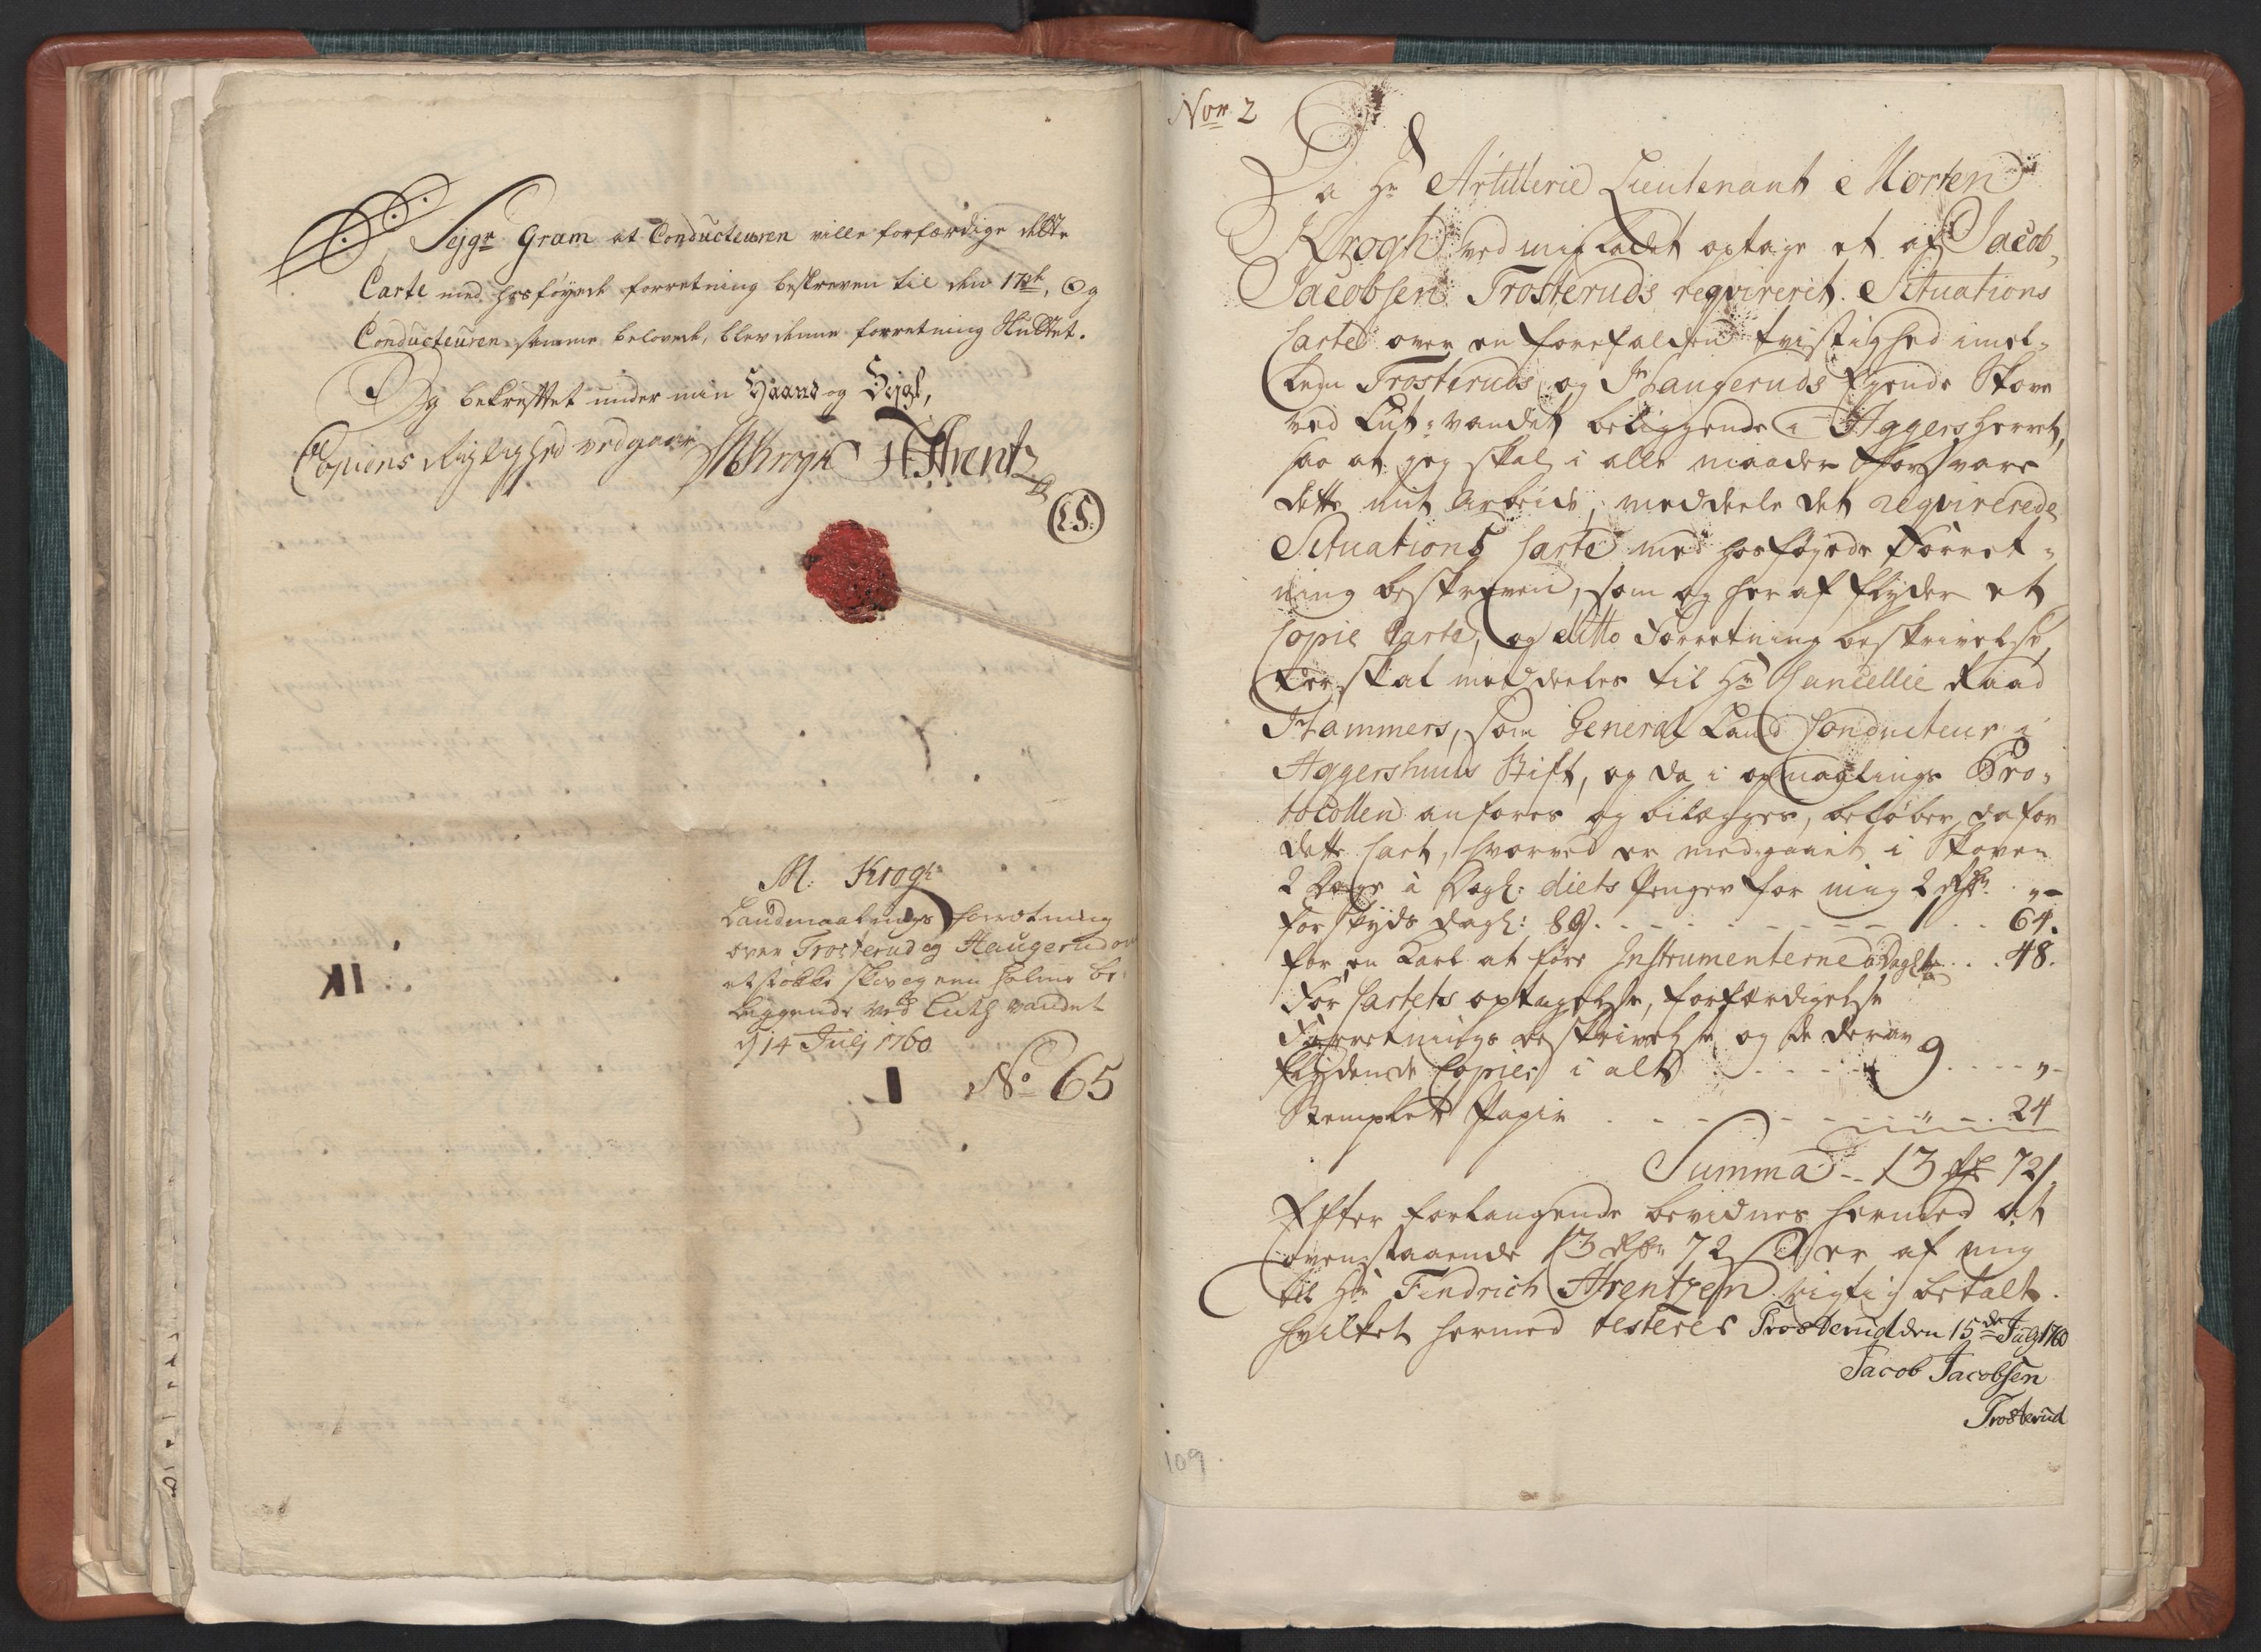 Sejgr Gram at Conducteuren ville forfærdige dette
Carte med hosføyede forretning beskreven til den 17de, Og
Conducteuren samme belovede, blev denne forretning Sluttet.
Og bekræftet under min Haand og Sejgl,
Copiens Rigtighed vedgaar MKrogh Arentz
L.S.
M: Krogh
Landmaalings forretning
over Trosterud og Haugerud om
et støkke skov og een holme be-
liggende ved Luth vandet
d 14 Julj 1760
No 65
Non 2
Da Hr Artillerie Lieutenant Morten
Krogh ved mig ladet optage et af Jacob
Jacobsen Trosteruds reqvireret Situations
Carte over en forefalden tvistighed imel-
lem Trosteruds og Haugeruds Ejende Skove
ved Lut-vandet beliggende i Aggersherret,
saa at jeg skal i alle maader Forsvare
dette mit arbeide, meddeele det reqvirerede
Situations Carte med hosføyede Forret-
ning beskreven, som og her af flyder et
Copie Carte, og ditto Forretning beskrivelse,
der skal meddeeles til Hr Cancellie Raad
Hammers, som General Land Conducteur i
Aggershuus Stift, og da i opmaalings Pro-
tocollen anføres og bilægges, beløber da for
dette Cart, hvorved er medgaaet i Skoven
2 Dage à Dagl: diets Penger for mig 2 Rdr „-
for Skyds dagl: 1 64.
for en Karl at føre Instrumenterne à Dagl 48.
For Cartets optagelse, forfærdigelse
Forretnings beskrivelse og de deraf
flydende Copier i alt 9 „-
Stemplet Papir „ 24
Summa 13 Rdr 72 ſ.
Efter forlangende bevidnes hermed at
ovenstaaende 13 Rdr 72 ſ er af mig
til Hr Fendrich Arentzen rigtig betalt.
hvilket hermed testeres Trosterud den 15de Julj 1760
Jacob Jacobsen
Trosterud
109